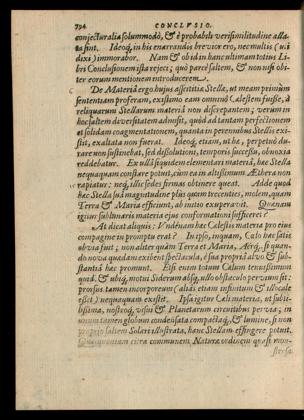 794 CONCLVSIO.
conjecturalia solummodò, & è probabili verisimilitudine alla-
ta sint. Ideoq́, in his enarrandis brevior ero, nec multis (uti
dixi) immorabor. Nam & ob id in hanc ultimam totius Li-
bri Conclusionem ista rejeci; quò parcè saltem, & non nisi obi-
ter eorum mentionem introducerem.
De Materia ergo hujus assititia Stella, ut meam primùm
sententiam proferam, existimo eam omninò Cœlestem fuisse, à
reliquarum Stellarum materia non discrepantem; verùm in
hoc saltem diversitatem admisit, quòd ad tantam perfectionem
et solidam coagmentationem, quanta in perennibus Stellis exi-
stit, exaltata non fuerat. Ideoq́, etiam, uti hæ, perpetuò du-
rare non sustinebat, sed dissolutioni, temporis successu, obnoxia
reddebatur. Ex ulla siquidem elementari materia, hac Stella
nequaquam constare potuit, cùm ea in altissimum Æthera non
rapiatur: neq́, illic sedes firmas obtinere queat. Adde quod
hæc Stella suâ magnitudine plus quàm trecenties, molem, quam
Terra & Maria efficiunt, ab initio exuperavit. Quænam
igitur sublunaris materia ejus conformationi sufficeret?
At dicat aliquis: Vndenam Cælestis materia pro ejus
compagine in promptu erat? In ipso, inquam, Cælo hæc satis
obvia fuit; non aliter quàm Terra et Maria, Aërq́, si quan-
do nova quædam exibent spectacula, è sua propria alvo & sub-
stantia hæc promunt. Etsi enim totum Cælum tenuissimum
quid, & ubiq́, motui Siderum absq́, ullo obstaculo pervium sit:
prorsus tamen incorporeum (aliàs etiam infinitum & illocale
esset) nequaquam existit. Ipsa igitur Cæli materia, ut subti-
lissima, nostroq́, visui & Planetarum circuitibus pervia; in
unum tamen globum condensata compactaq́, & lumine, si non
proprio saltem Solari illustrata, hanc Stellam effingere potuit.
Quæ quoniam citra communem Naturæ ordinem quasi mon-
strosa